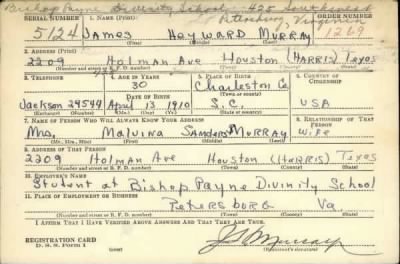 Bishop Payne Divinity School: 425 Southwest
Petersburg, Virginia
SERIAL NUMBER 1. NAME (Print) ORDER NUMBER
5124 James Heyward Murray 1269
(First) (Middle) (Last)
2. ADDRESS (Print)
2209 Holman Ave Houston (Harris) Texas
(Number and street or R. F. D. number) (Town) (County) (State)
3. TELEPHONE 4. AGE IN YEARS 5. PLACE OF BIRTH 6. COUNTRY OF CITIZENSHIP
30 Charleston Co.
DATE OF BIRTH (Town or county)
Jackson 29544 April 13 1910 S.C. USA
(Exchange) (Number) (Mo.) (Day) (Yr.) (State or country)
7. NAME OF PERSON WHO WILL ALWAYS KNOW YOUR ADDRESS 8. RELATIONSHIP OF THAT PERSON
Mrs. Malvina Sanders Murray Wife
(Mr., Mrs., Miss) (First) (Middle) (Last)
9. ADDRESS OF THAT PERSON
2209 Holman Ave Houston (Harris) Texas
(Number and street or R. F. D. number) (Town) (County) (State)
10. EMPLOYER'S NAME
Student at Bishop Payne Divinity School
11. PLACE OF EMPLOYMENT OR BUSINESS
Petersburg Va
(Number and street or R. F. D. number) (Town) (County) (State)
I AFFIRM THAT I HAVE VERIFIED ABOVE ANSWERS AND THAT THEY ARE TRUE.
REGISTRATION CARD
D. S. S. Form 1
(Registrant's signature)